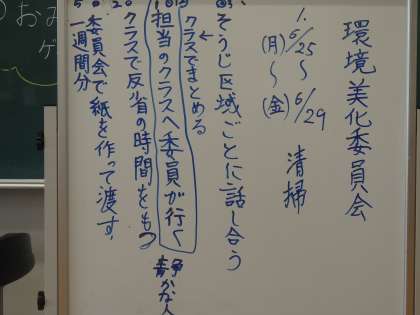 環境美化委員会
1. 6/25(月)〜6/29(金) 清掃
そうじ区域ごとに話し合う
クラスでまとめる
担当のクラスへ委員が行く 静かな人
クラスで反省の時間をもつ
委員会で紙を作って渡す
一週間分